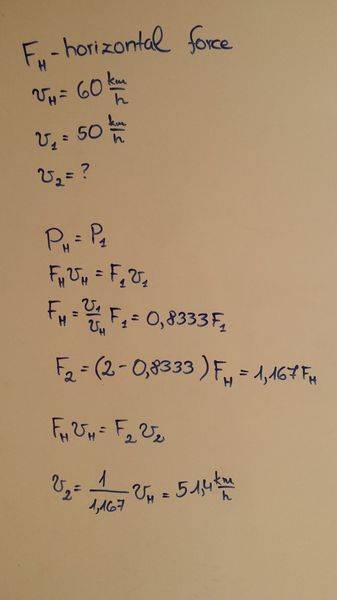 F_H - horizontal force
v_H = 60 km/h
v_1 = 50 km/h
v_2 = ?
P_H = P_1
F_H v_H = F_1 v_1
F_H = v_1/v_H F_1 = 0,8333 F_1
F_2 = (2 - 0,8333) F_H = 1,167 F_H
F_H v_H = F_2 v_2
v_2 = 1/1,167 v_H = 51,4 km/h